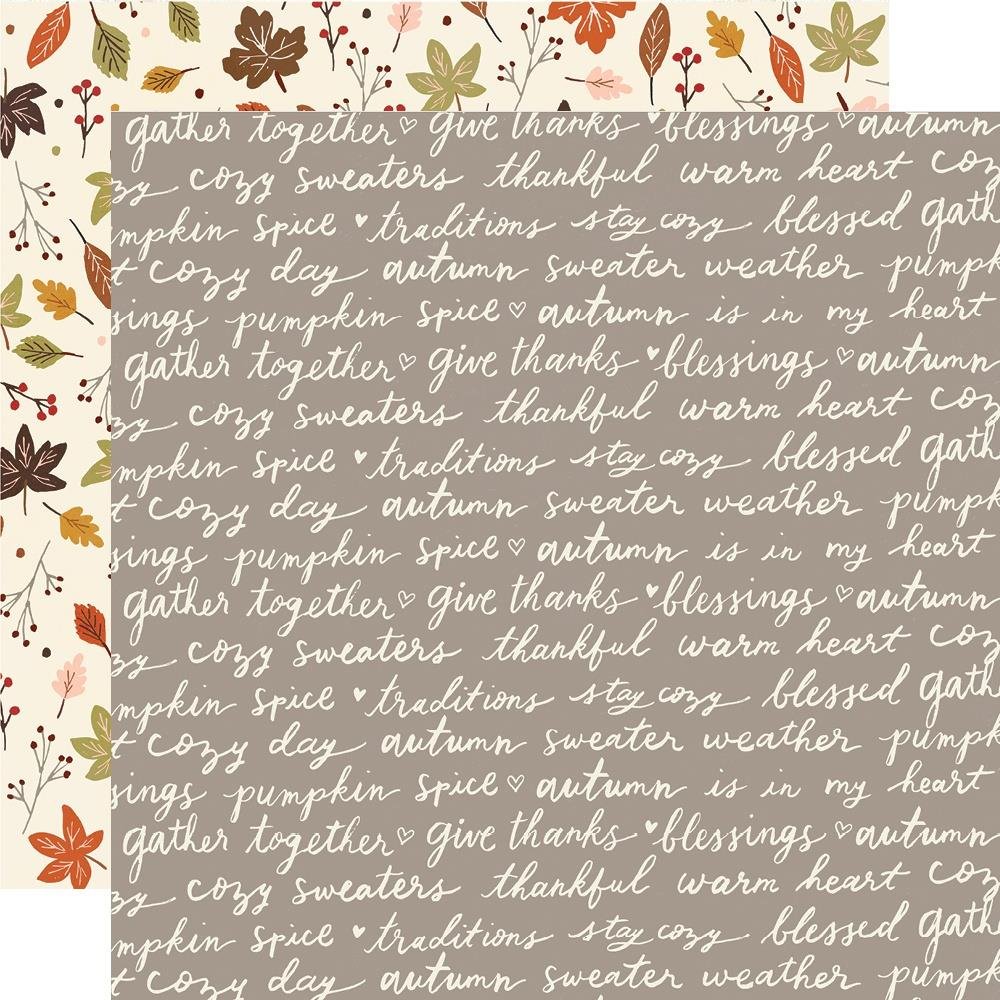 gather together♡ give thanks ♥blessings ♡autumn
zy cozy sweaters thankful warm heart coz
mpkin spice ♥traditions stay cozy blessed gath
t cozy day autumn sweater weather pumpk
sings pumpkin spice♡ autumn is in my heart
gather together♡ give thanks ♥blessings ♡autumn
zy cozy sweaters thankful warm heart coz
mpkin spice ♥traditions stay cozy blessed gath
t cozy day autumn sweater weather pumpk
sings pumpkin spice♡ autumn is in my heart
gather together♡ give thanks ♥blessings ♡autumn
zy cozy sweaters thankful warm heart coz
mpkin spice ♥traditions stay cozy blessed gath
t cozy day autumn sweater weather pumpk
sings pumpkin spice♡ autumn is in my heart
gather together♡ give thanks ♥blessings ♡autumn
zy cozy sweaters thankful warm heart coz
mpkin spice ♥traditions stay cozy blessed gath
t cozy day autumn sweater weather pumpk